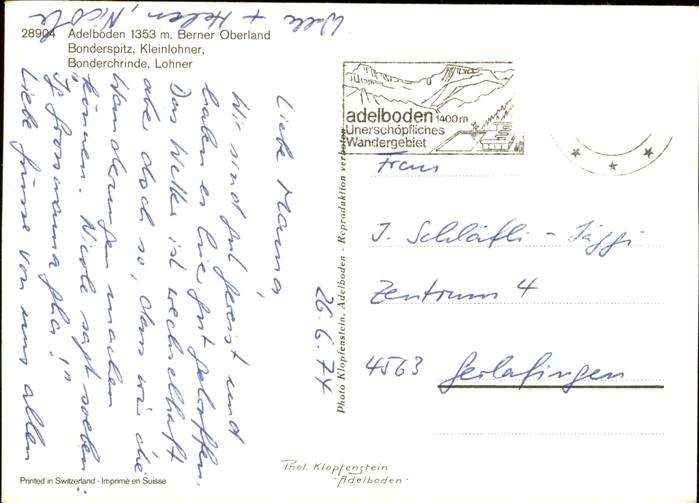 28904 Adelboden 1353 m. Berner Oberland
Bonderspitz, Kleinlohner,
Bonderchrinde, Lohner
adelboden 1400m
Unerschöpfliches
Wandergebiet
Liebe Mama,
Wir sind gut gereist und
haben es hier gut getroffen.
Das Wetter ist wechselhaft
aber doch so, dass wir die
Wanderungen machen
können. Nicole sagt soeben:
"I grossmama
Liebe Grüsse von uns allen
Walti + Helen, Nicole
26.6.74
Photo Klopfenstein, Adelboden - Reproduktion verboten
Frau
J. Schläfli-Jäggi
Zentrum 4
4563 Gerlafingen
Printed in Switzerland - Imprimé en Suisse
Phot. Klopfenstein
"Adelboden"